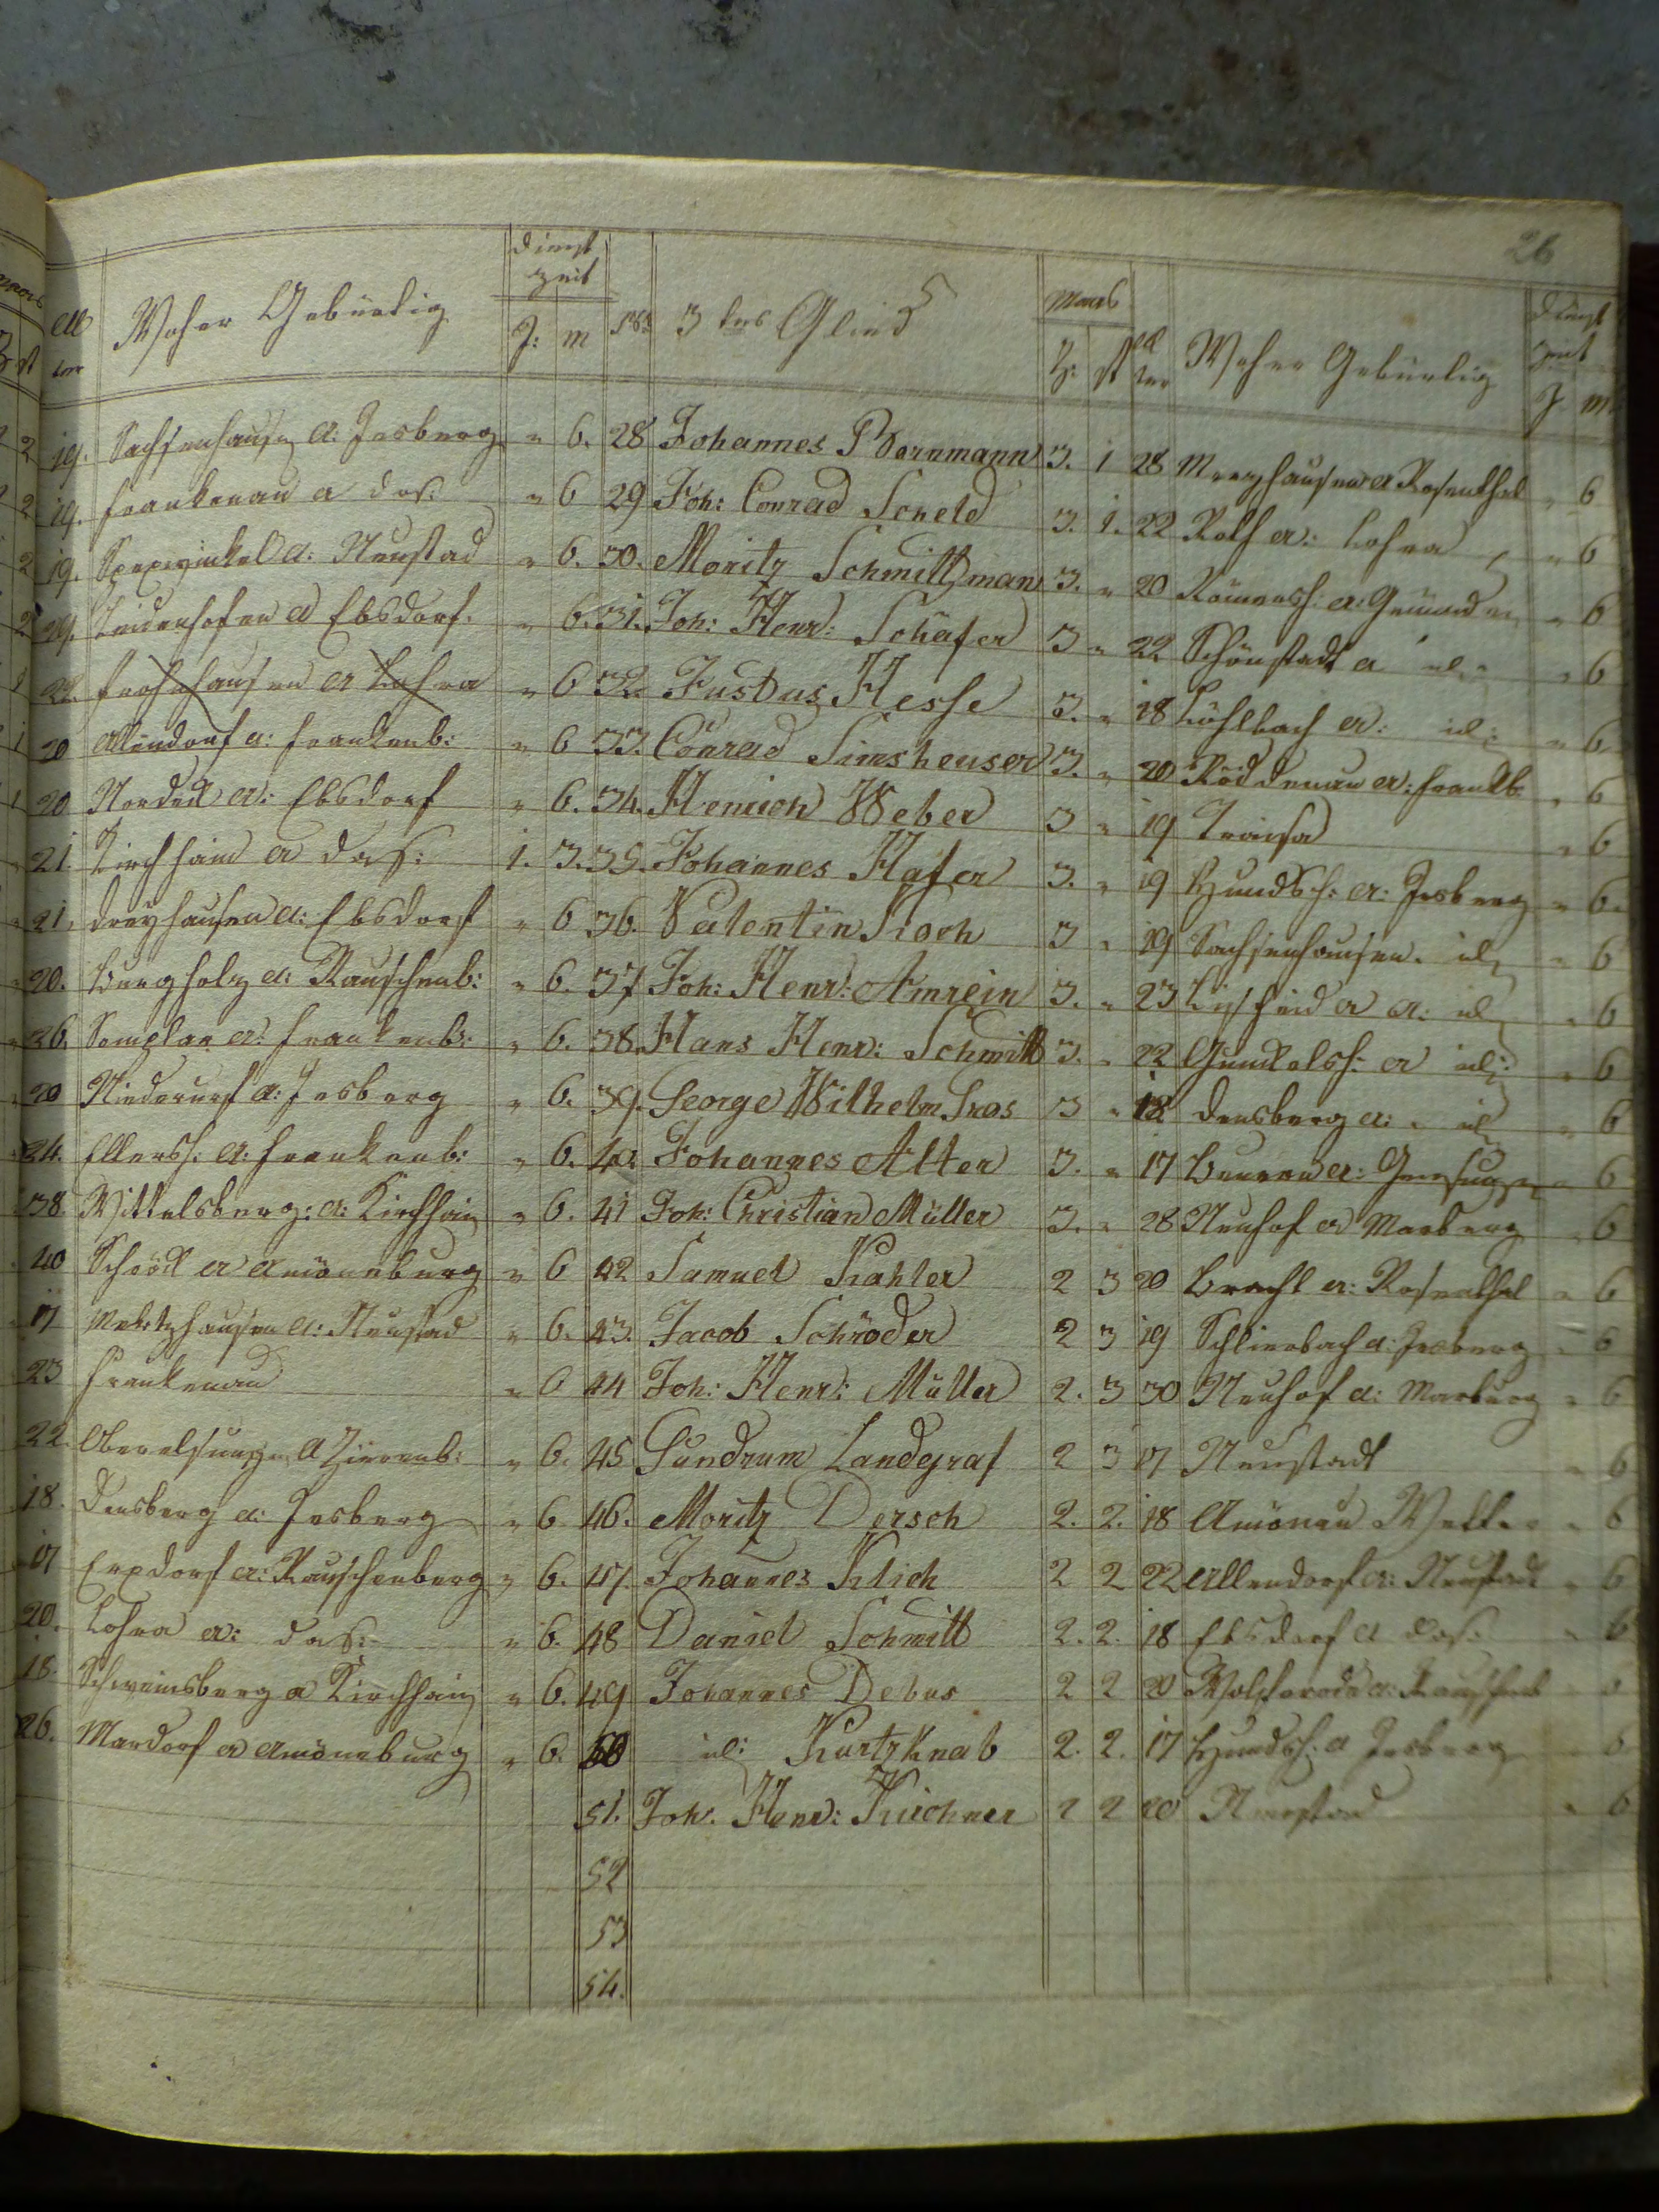 26
Alter Woher Gebürtig Dienst Zeit J: M No 3tes Glied Maas Z: St Alter Woher Gebürtig Dienst Zeit J M
2 19. Sachsenhausen A: Jesberg " 6. 28 Johannes Bornmann 3. 1 28 Merzhausen A Rosenthal " 6
2 19. Frankenau A das: " 6 29 Joh: Conrad Scheld 3. 1. 22 Roth A: Lohra " 6
2 19. Speckwinkel A: Neustad " 6. 30. Moritz Schmittman 3. " 20 Römersh: A: Gemünden " 6
2 29. Leidenhofen A Ebsdorf. " 6. 31. Joh: Henr: Schäfer 3 " 22 Schönstadt A id: " 6
1 22. Frohnhausen A Lohra " 6 32. Justus Hesse 3. " 18 Löhlbach A: id: " 6.
1 20 Allendorf A: Frankenb: " 6 33. Conrad Simsheuser 3. " 20 Röddenau A: Frankb. " 6
1 20 Nordeck A: Ebsdorf " 6. 34. Henrich Weber 3 " 19 Treisa " 6
21. Kirchhain A das: 1. 3. 35. Johannes Hafer 3. " 19 Hundsh: A: Jesberg " 6.
21. Dreyhausen A: Ebsdorf " 6 36. Valentin Kroch 3 " 19 Sachsenhausen. id: " 6
20. Burgholz A: Rauschenb: " 6. 37 Joh: Henr: Amrein 3. " 23 Lischeid A A: id: " 6
36. Somplar A: Frankenb: " 6. 38. Hans Henr: Schmitt 3. " 22 Gunkelsh: A id: " 6
20 Niederurf A: Jesberg " 6. 39. George Wilhelm Kros 3 " 18 Densberg A: id: " 6
24. Ellersh: A: Frankenb: " 6. 40. Johannes Alter 3. " 17 Beuern A: Gensungen " 6
38. Wittelsberg: A: Kirchhain " 6. 41 Joh: Christian Müller 3. " 28 Neuhof A Marburg " 6
40 Schröck A Amöneburg " 6 42 Samuel Kahler 2 3 20 Bracht A: Rosenthal " 6
17 Mekshausen A: Neustad " 6. 43. Jacob Schröder 2 3 19 Schlierbach A: Jesberg " 6
23 Frankenau " 6 44 Joh: Henr: Müller 2. 3 30 Neuhof A: Marburg " 6
22. Oberelsungen A Zierenb: " 6. 45 Gundrum Landgraf 2 3 17 Neustadt " 6
18. Densberg A: Jesberg " 6 46. Moritz Dersch 2. 2. 18 Amönau Wetter " 6
17 Erxdorf A: Rauschenberg " 6. 47. Johannes Klich 2 2 22 Allendorf A: Neustadt " 6
20. Lohra A: das: " 6. 48 Daniel Schmitt 2. 2. 18 Ebsdorf A das: " 6
18. Schweinsberg A Kirchhain " 6. 49 Johannes Debus 2 2 20 Wolferode A: Rauschenb " 6
26. Mardorf A Amöneburg " 6. 50 id: Kurtzknab 2. 2. 17 Hundsh: A Jesberg " 6
51. Joh. Henr: Kirchner 2 2 20 Neustad " 6
52
53
54.